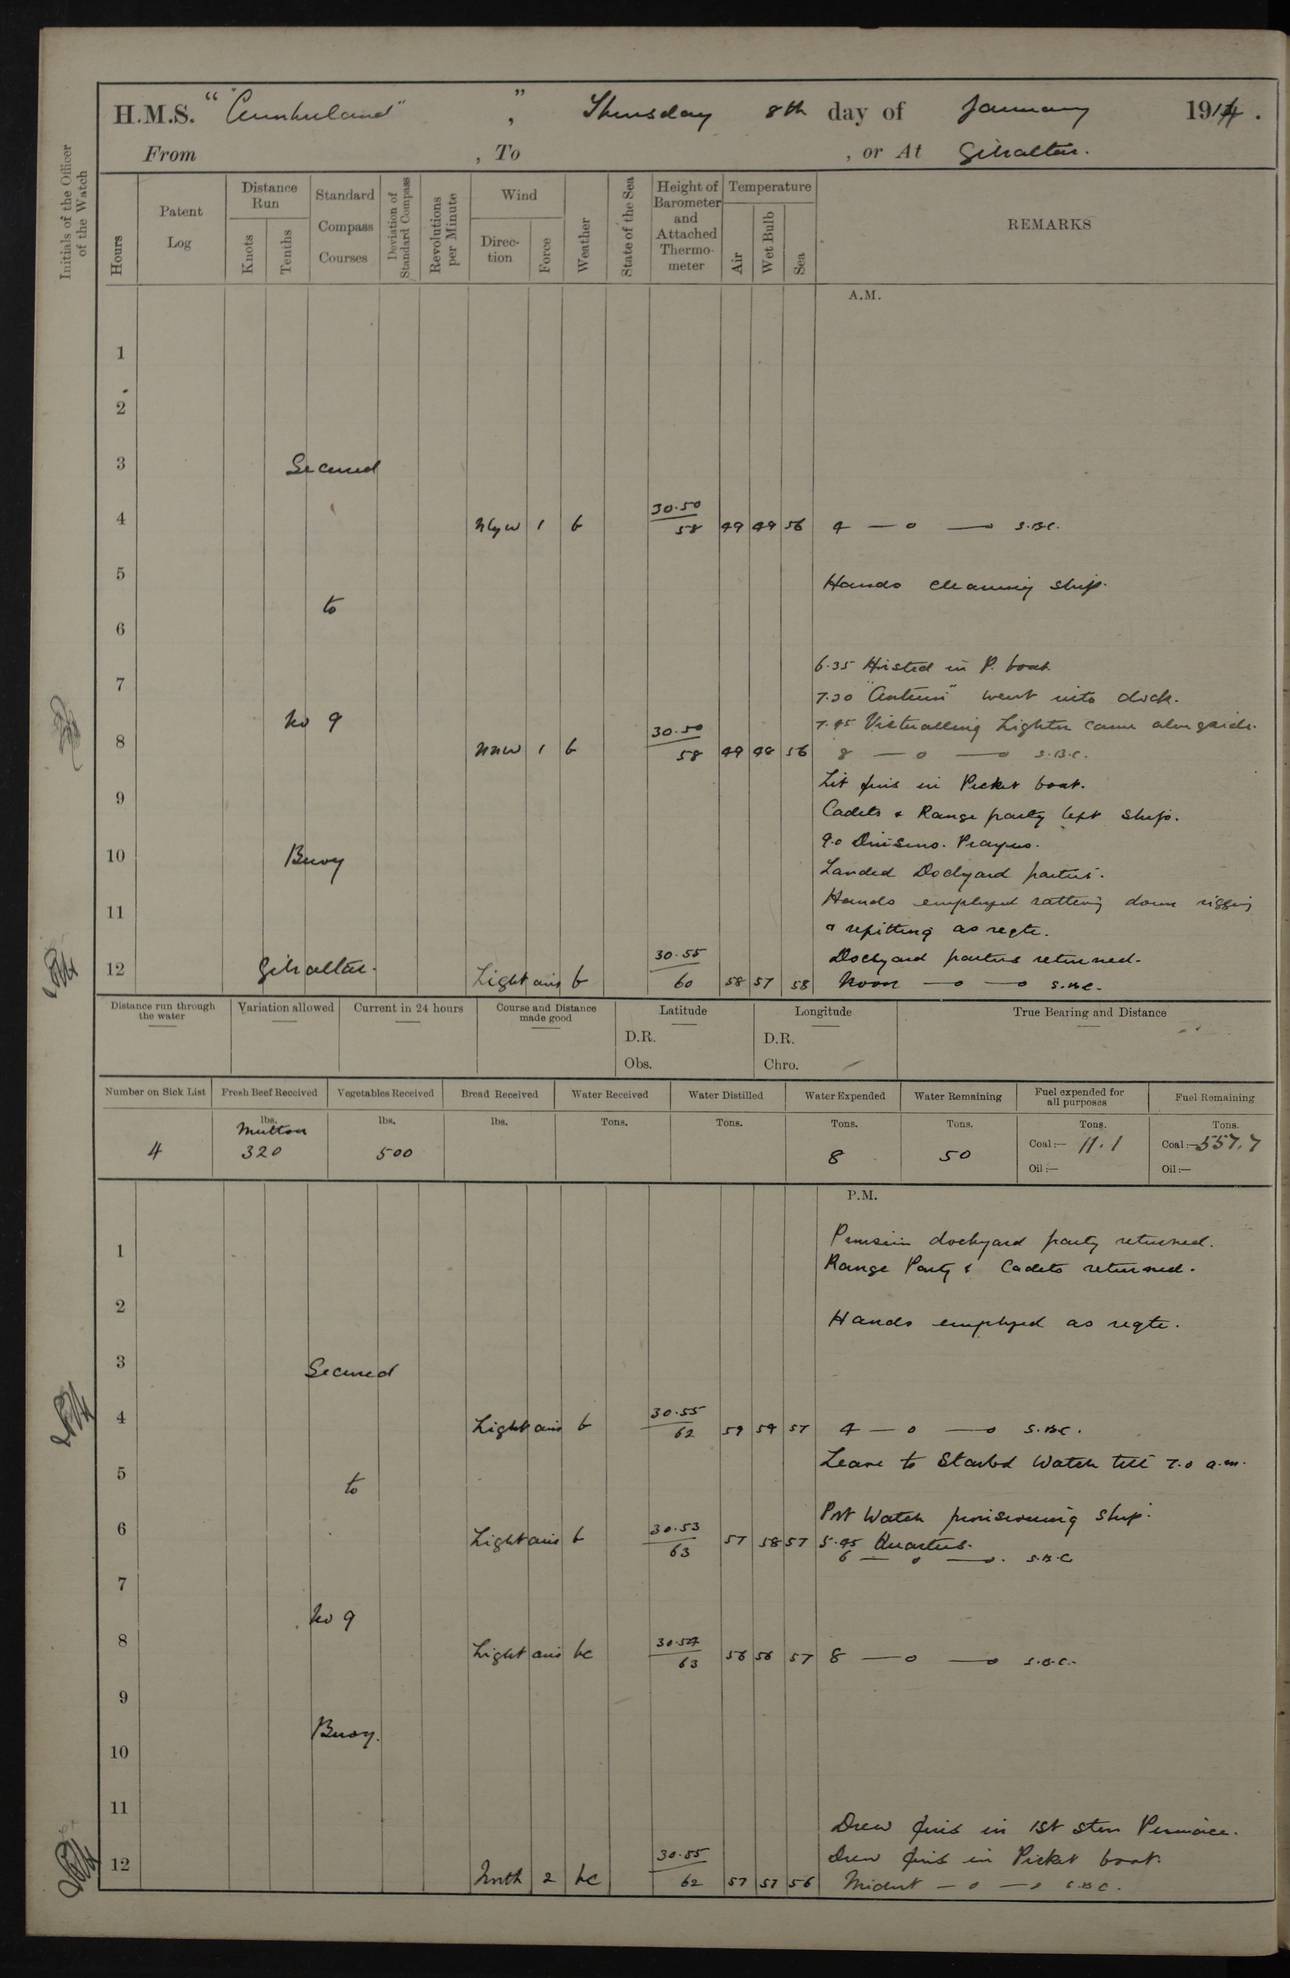 H.M.S. "Cumberland", Thursday 8th day of January 1914.
From , To , or At Gibraltar.
Initials of the Officer of the Watch
Hours
Patent Log
Distance Run
Knots
Tenths
Standard Compass Courses
Deviation of Standard Compass
Revolutions per Minute
Wind
Direction
Force
Weather
State of the Sea
Height of Barometer and Attached Thermometer
Temperature
Air
Wet Bulb
Sea
REMARKS
A.M.
1
2
3 Secured
4 Nly W 1 b 30.50 58 49 49 56 4 — o — o S.B.C.
5 Hands cleaning ship.
to
6
6.35 Hoisted in P. boat.
7
7.30 " " went into dock.
No 9 7.45 Victualling Lighter came alongside.
8 NNW 1 b 30.50 58 49 48 56 8 — o — o S.B.C.
Lit fires in Picket boat.
9
Cadets & Range party left ship.
9.0 Divisions. Prayers.
10 Buoy
Landed Dockyard parties.
Hands employed rattling down rigging
11
& refitting as reqte.
Dockyard parties returned.
12 Gibraltar. Light airs b 30.55 60 58 57 58 Noon — o — o S.B.C.
Distance run through the water
Variation allowed
Current in 24 hours
Course and Distance made good
Latitude
D.R.
Obs.
Longitude
D.R.
Chro.
True Bearing and Distance
Number on Sick List Fresh Beef Received Vegetables Received Bread Received Water Received Water Distilled Water Expended Water Remaining Fuel expended for all purposes Fuel Remaining
lbs. lbs. lbs. Tons. Tons. Tons. Tons. Tons. Tons.
Mutton
4 320 500 8 50 Coal:— 11.1 Coal:— 557.7
Oil:— Oil:—
P.M.
Provision dockyard party returned.
1
Range Party & Cadets returned.
2
Hands employed as reqte.
3 Secured
4 Light airs b 30.55 62 59 59 57 4 — o — o S.B.C.
Leave to Starbd Watch till 7.0 a.m.
5
to
Prt Watch provisioning ship.
6 Light airs b 30.53 63 57 58 57 5.45 Quarters.
6 — o — o. S.B.C.
7
No 9
8 Light airs bc 30.54 63 56 56 57 8 — o — o S.B.C.
9
Buoy.
10
11
Drew fires in 1st Stm Pinnace.
Drew fires in Picket boat.
12 North 2 bc 30.55 62 57 57 56 Midnt — o — o S.B.C.